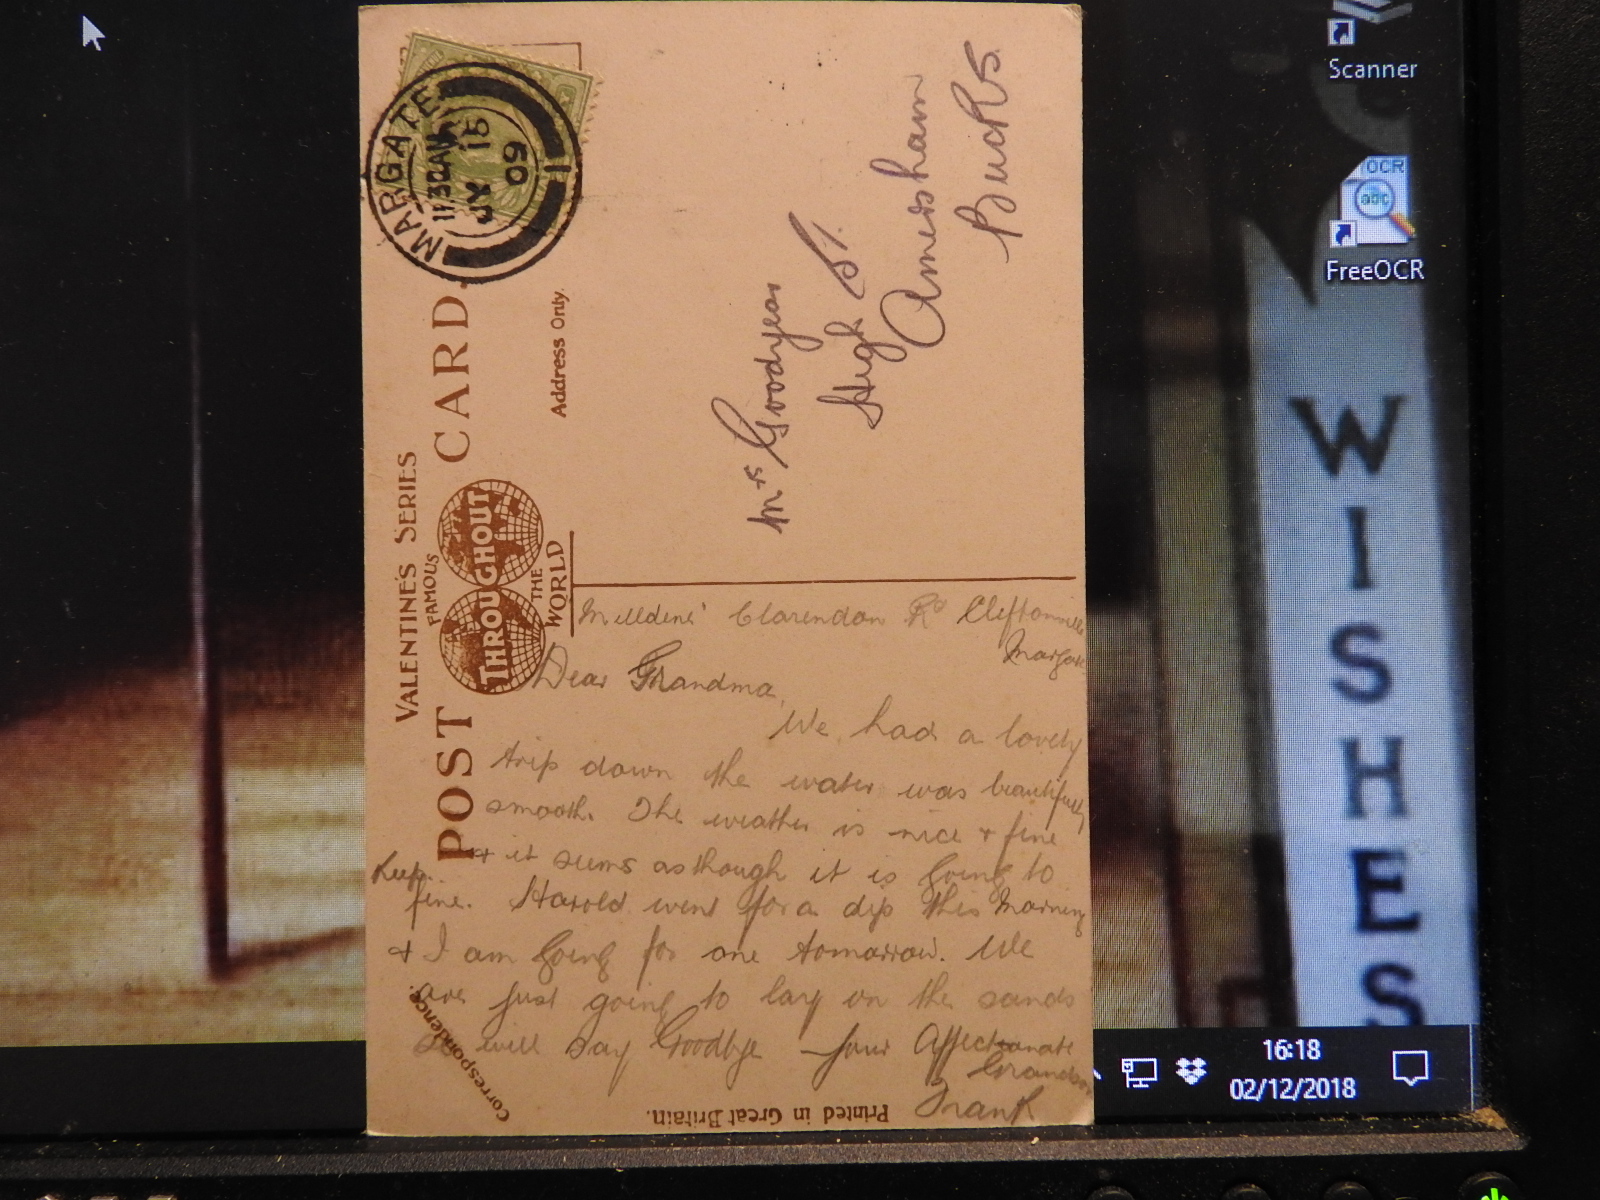 VALENTINE'S SERIES
FAMOUS
THROUGHOUT
THE
WORLD
POST CARD.
Address Only.
MARGATE
1130AM
JY 15
09
1
Mrs Goodyear
High St.
Amersham
Bucks
Milldene Clarendon Rd Cliftonville
Margate
Dear Grandma,
We had a lovely
trip down the water was beautifully
smooth. The weather is nice + fine
+ it seems as though it is going to
Keep
fine. Harold went for a dip this morning
+ I am going for one tomorrow. We
are just going to lay on the sands
so will say Goodbye your Affectionate
Grandson
Frank
Correspondence.
Printed in Great Britain.
Scanner
OCR
abc
FreeOCR
WISHES
16:18
02/12/2018